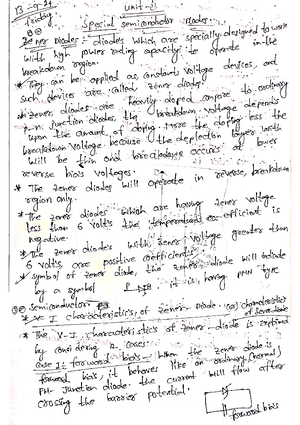 13-9-21 Unit-II
Friday Special semiconductor diodes:-
Zener diodes:- diodes which are specially designed to work
with high power rating capacity to operate in the
breakdown region.
* They can be applied as constants voltage devices, and
such devices are called zener diode.
* zener diodes are heavily doped compare to ordinary
P-n junction diodes, the breakdown voltage depends
upon the amount of doping. more the doping less the
breakdown voltage because the depletion layers with
will be thin and breakdown occurs at lower
reverse bias voltages.
* The zener diodes will operate in reverse breakdown
region only.
* The zener diodes which are having zener voltage
less than 6 volts the temperature co-efficient is
negative.
* The zener diodes with zener voltage greater than
6 volts are positive coefficients.
* symbol of zener diode, the zener diode will indicate
by a symbol it is having PNN type
semiconductor
* V-I characteristics of zener-diode (or) characteristics
of zener diode
* The V-I characteristics of zener-diode is explained
by considering 2 cases.
Case 1: forward bias:- When the zener diode is
forward bias, it behaves like an ordinary (normal)
PN-junction diode. the current will flow after
crossing the barrier potential.
forward bias